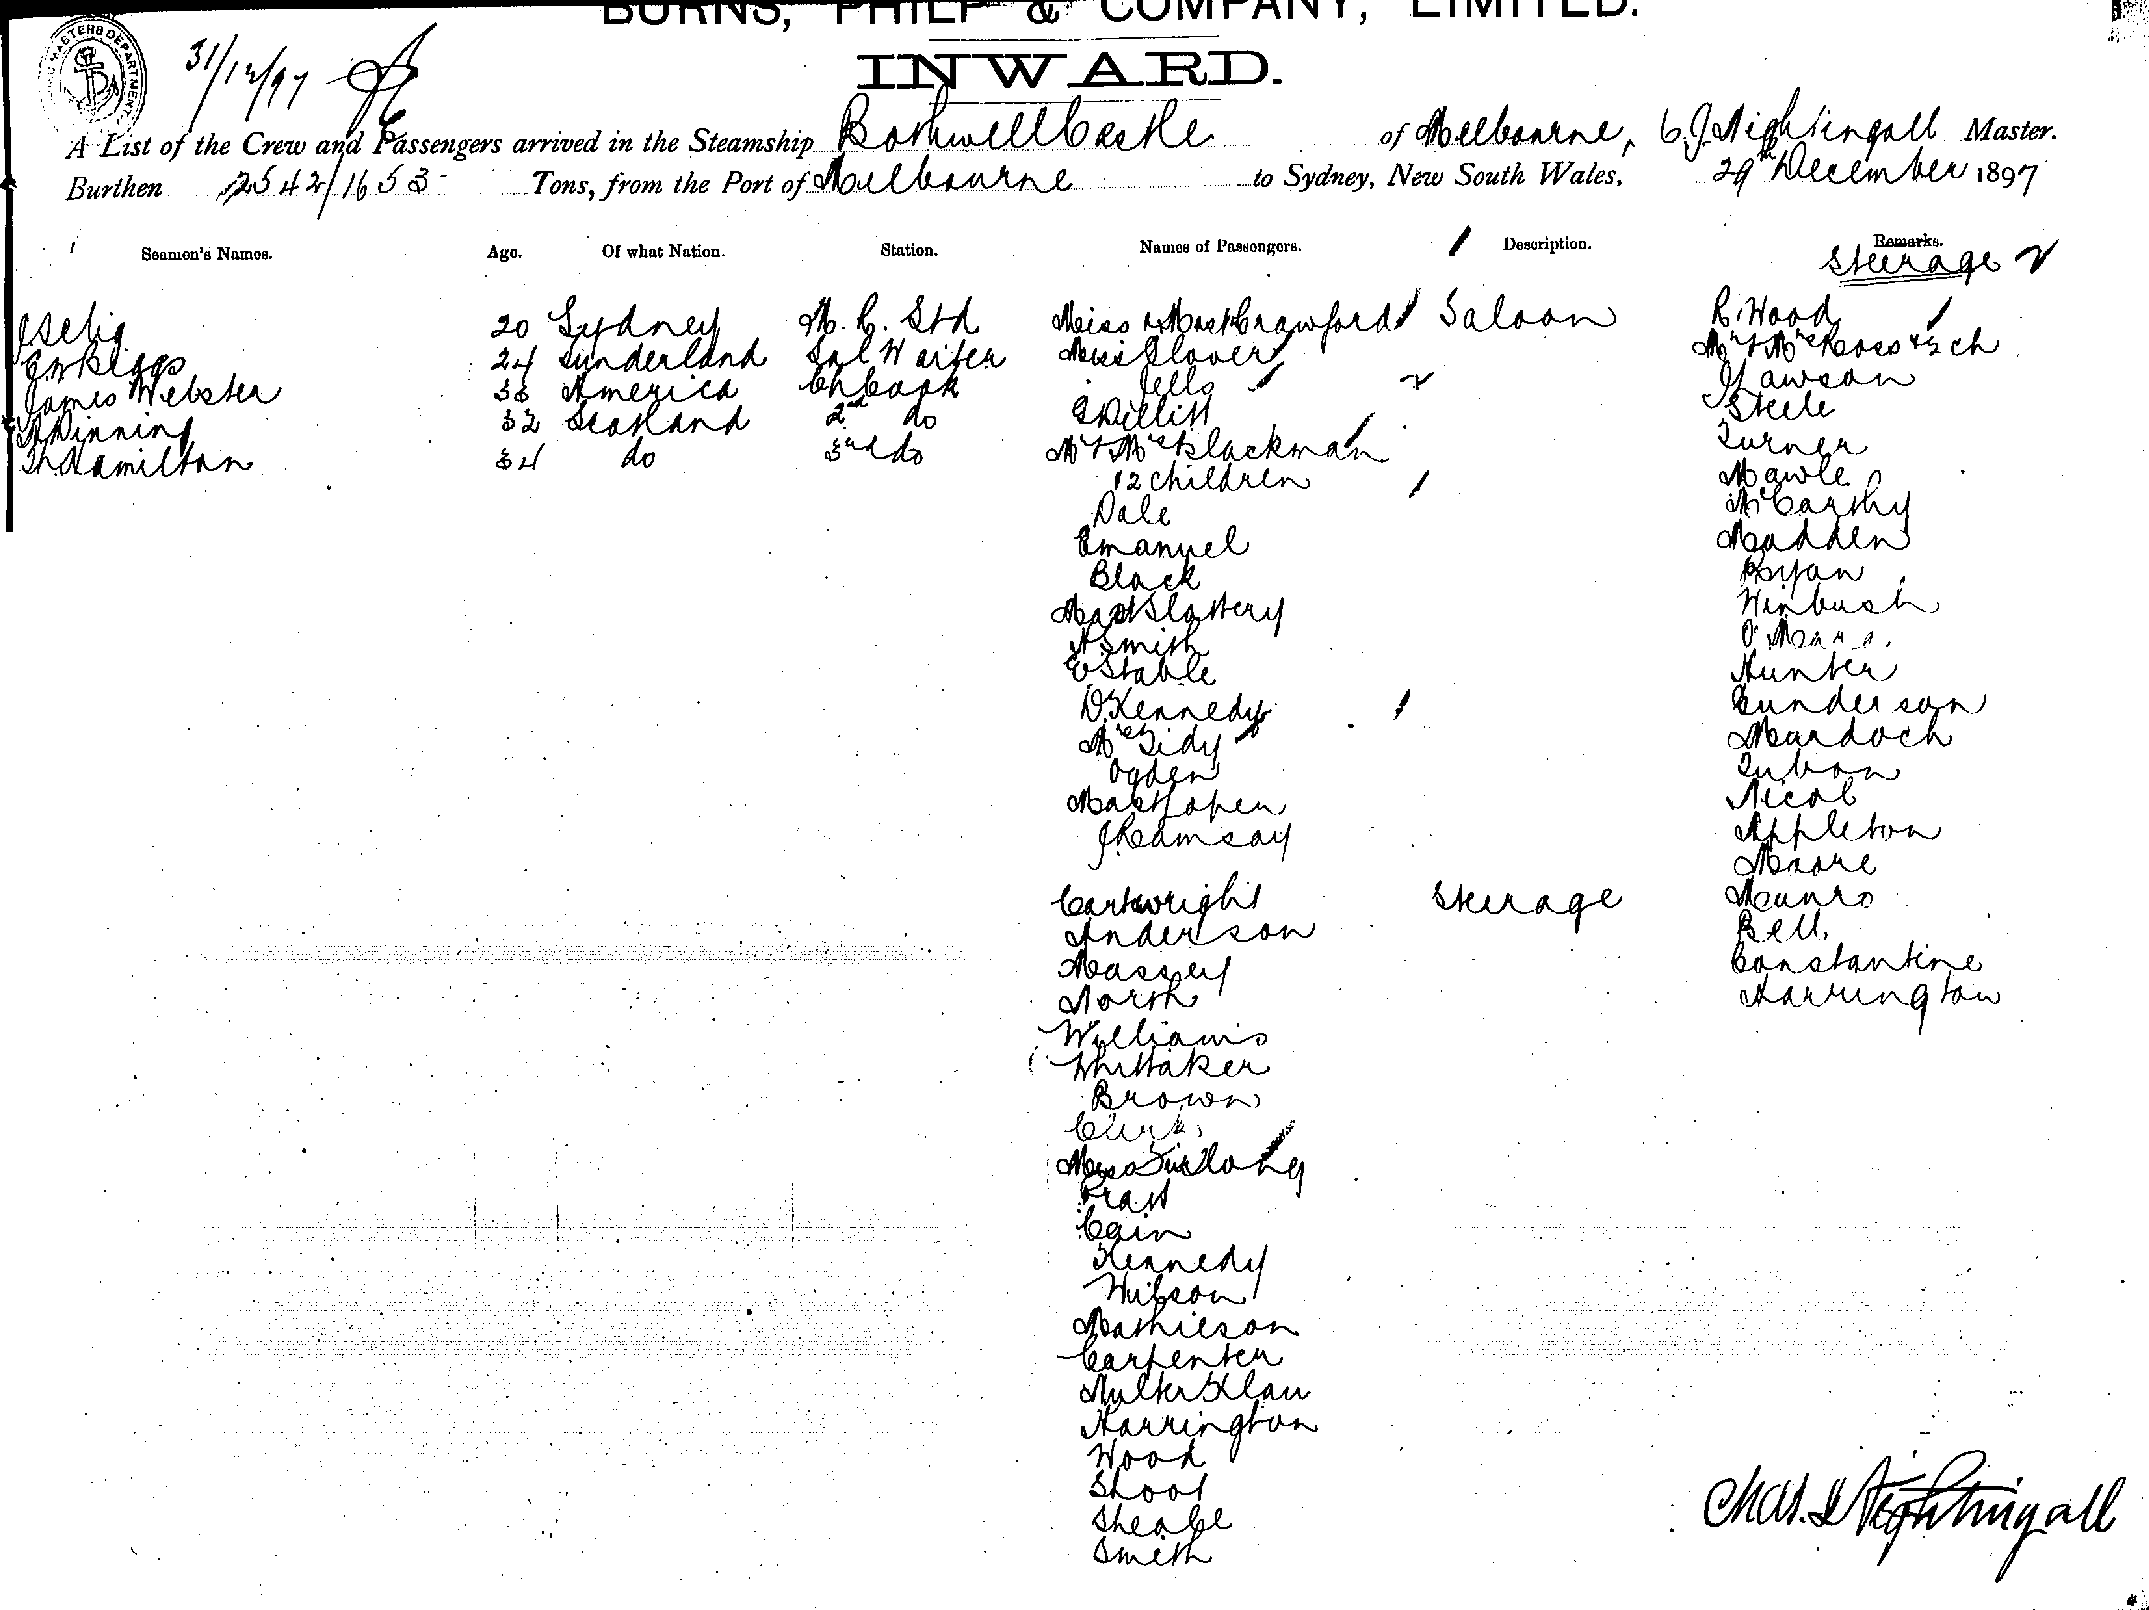 BURNS, PHILP & COMPANY, LIMITED.
INWARD.
31/12/97
A List of the Crew and Passengers arrived in the Steamship Bothwell Castle of Melbourne, C. J. Nightingall Master.
Burthen 2542/1653 Tons, from the Port of Melbourne to Sydney, New South Wales, 29th December 1897
Seamen's Names. Age. Of what Nation. Station. Names of Passengers. Description. Remarks.
Steerage
20 Sydney M. R. Std
24 Sunderland Sal Waiter
James Webster 38 America Ch Cook
A Dinning 32 Scotland 2nd do
Hamilton 34 do 3rd do
Miss & Mast Crawford Saloon
Miss Glover
Jells
E Willitt
Mr & Mrs Blackman
12 children
Dale
Emanuel
Black
Mast Slattery
A Smith
E Stable
D. Kennedy
Mrs Tidy
Ogden
J Ramsay
Cartwright Steerage
Anderson
Massey
North
Williams
Whittaker
Brown
Clirk
Miss Furlong
Pratt
Cain
Kennedy
Wilson
Mathieson
Carpenter
Harrington
Wood
Shoot
Smith
R. Wood
Mr & Mrs Ross & 2 ch
J Lawson
Steele
Turner
Mawle
McCarthy
Madden
Ryan
Winbush
O'Mara
Hunter
Gunderson
Murdoch
Nicol
Appleton
Moore
Munro
Bell
Constantine
Harrington
Chas. J Nightingall